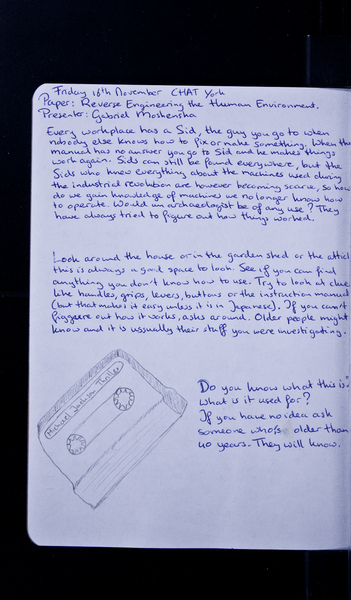 Friday 16th November CHAT York
Paper: Reverse Engineering the Human Environment.
Presenter: Gabriel Moshenska
Every workplace has a Sid, the guy you go to when
nobody else knows how to fix or make something. When the
manual has no answer you go to Sid and he makes things
work again. Sids can still be found everywhere, but the
Sids who knew everything about the machines used during
the industrial revolution are however becoming scarce, so how
do we gain knowledge of machines we no longer know how
to operate. Would an archaeologist be of any use? They
have always tried to figure out how things worked.
Look around the house or in the garden shed or the attic
this is always a good space to look. See if you can find
anything you don't know how to use. Try to look at clues
like handles, grips, levers, buttons or the instruction manual
(but that makes it easy unless it is in Japanese). If you can't
figguere out how it works, asks around. Older people might
know and it is ussually their stuff you were investigating.
Michael Jackson Thriller
Do you know what this is?
What is it used for?
If you have no idea ask
someone who's older than
40 years. They will know.